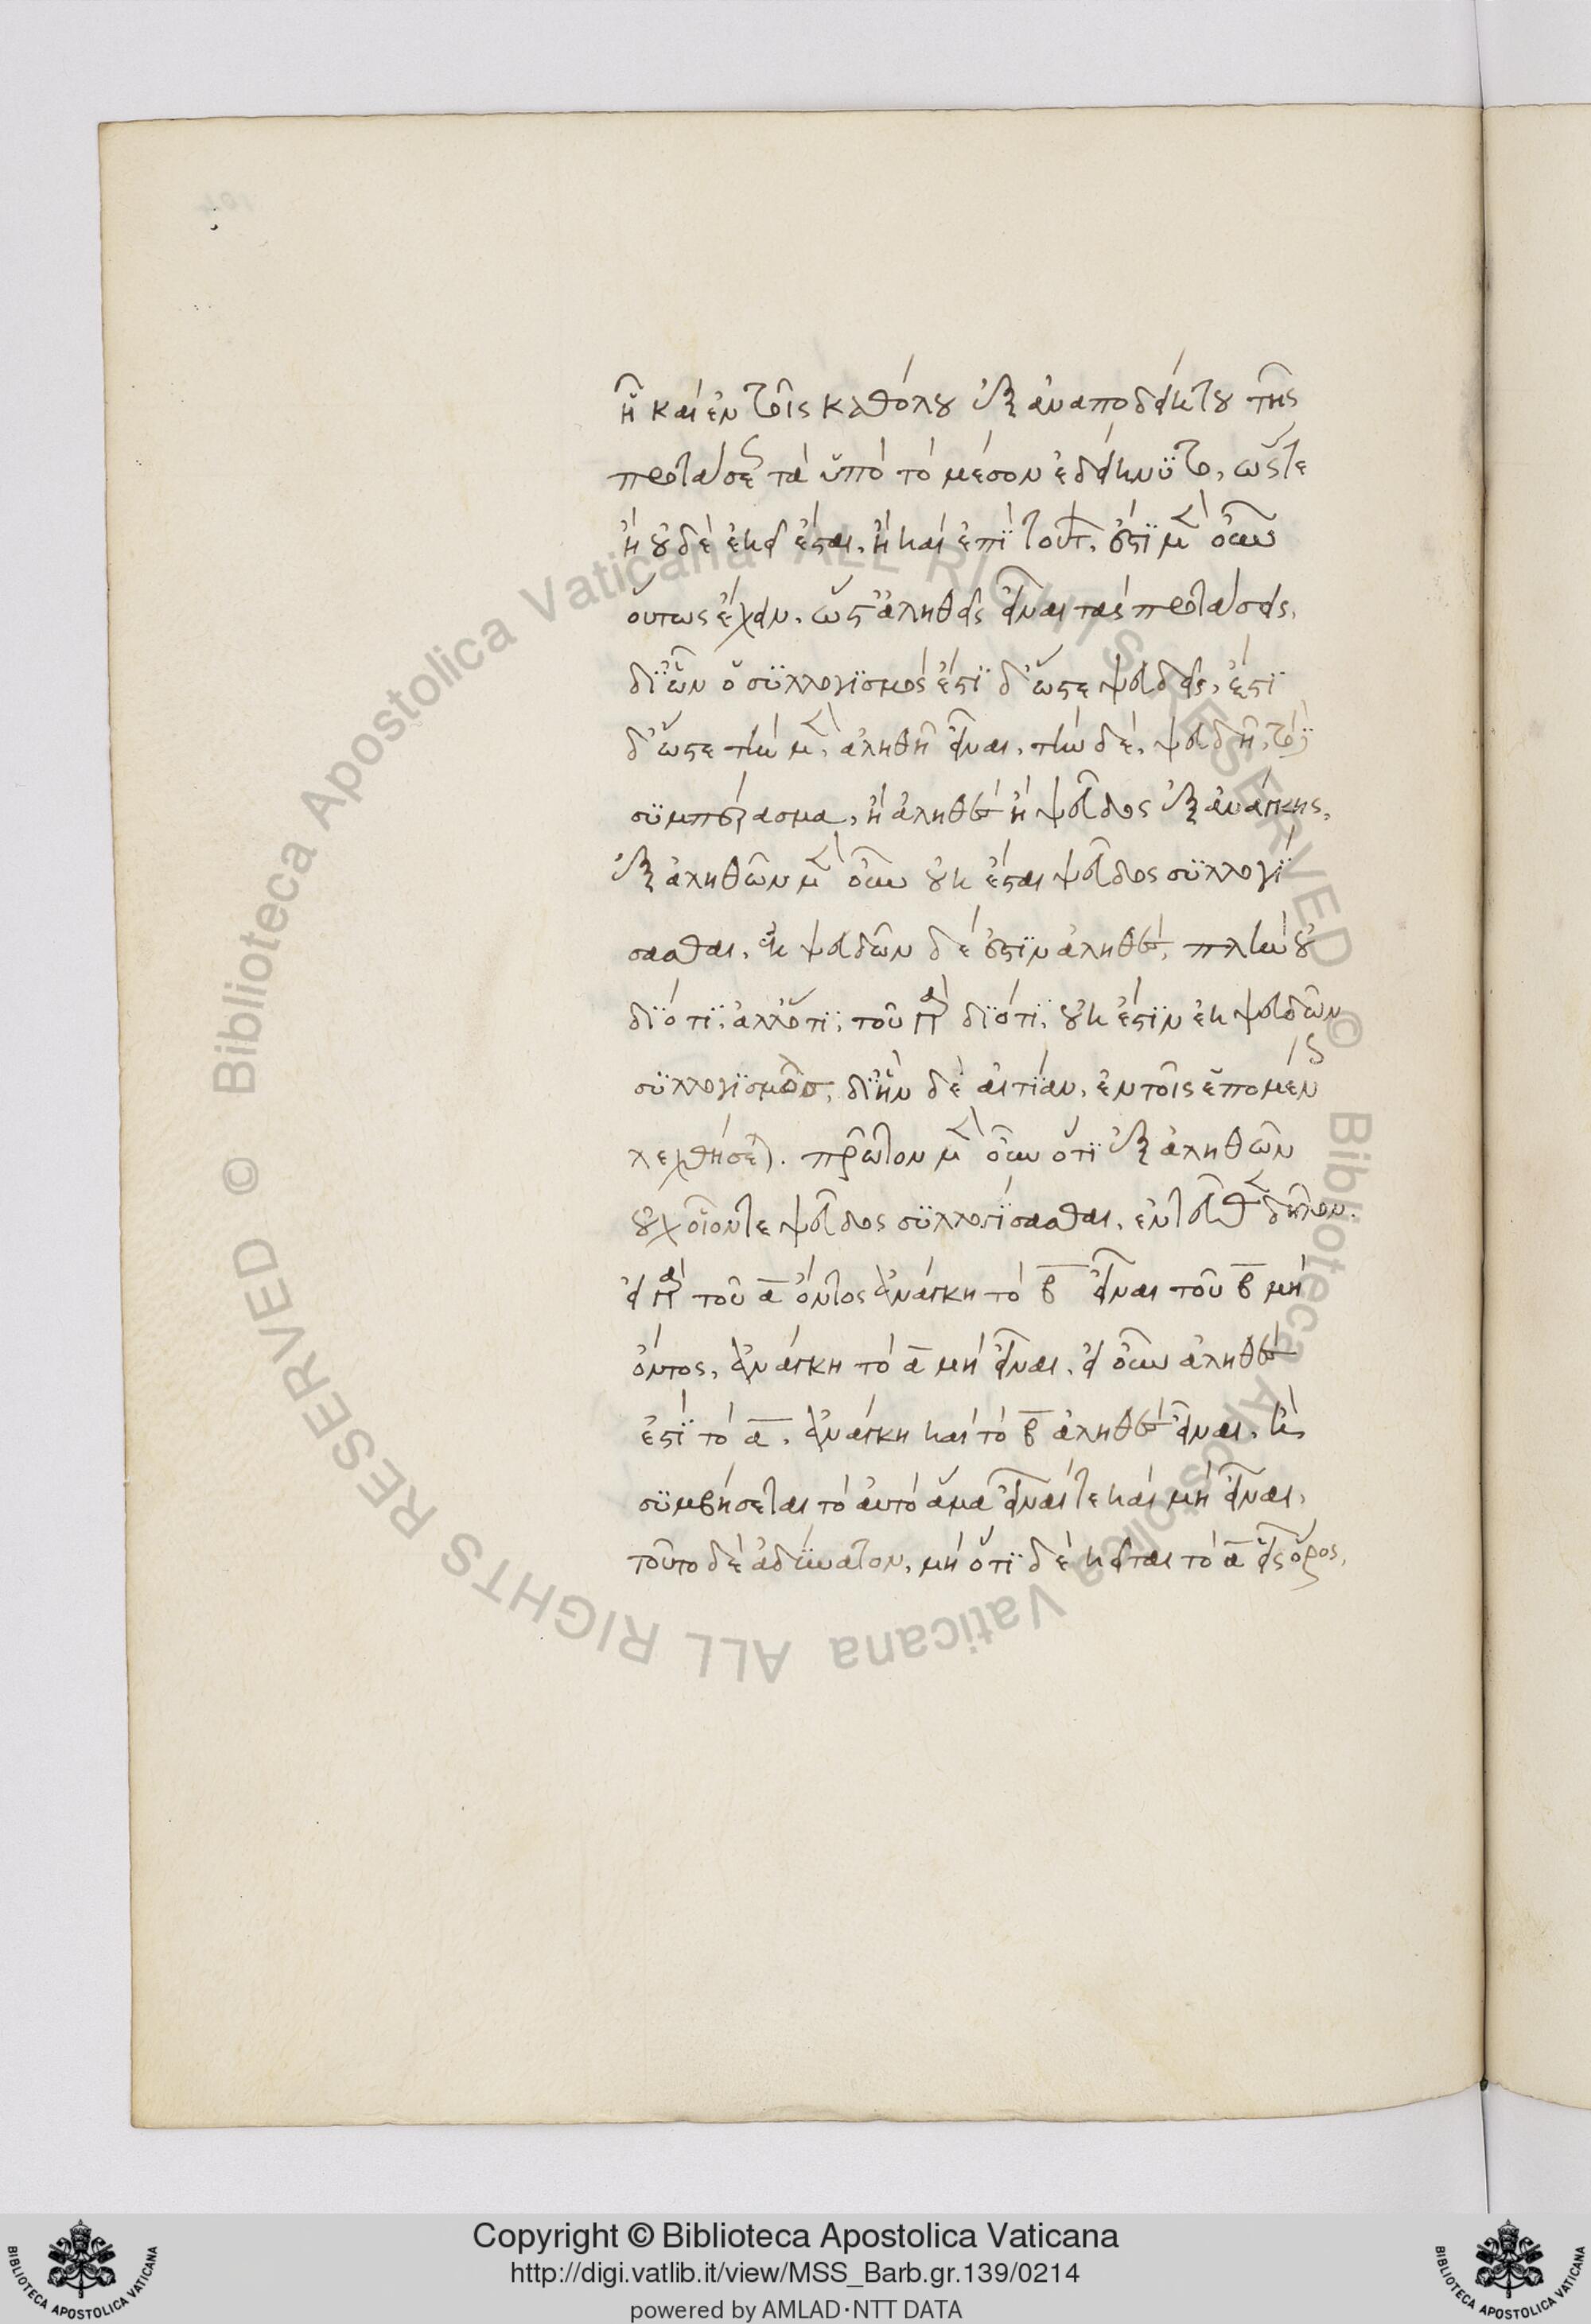 ἢ καὶ ἐν τοῖς καθόλου ἐξ ἀναποδείκτου τῆς
προτάσεως τὰ ὑπὸ τὸ μέσον ἐδείκνυτο, ὥστε
ἢ οὐδὲ ἐκεῖ ἔσται, ἢ καὶ ἐπὶ τούτων. ἔστι μὲν οὖν
οὕτως ἔχειν, ὥστ' ἀληθεῖς εἶναι τὰς προτάσεις,
δι' ὧν ὁ συλλογισμός ἔστι δ' ὥστε ψευδεῖς, ἔστι
δ' ὥστε τὴν μὲν, ἀληθῆ εἶναι, τὴν δὲ, ψευδῆ, τὸ
συμπέρασμα, ἢ ἀληθὲς ἢ ψεῦδος ἐξ ἀνάγκης,
ἐξ ἀληθῶν μὲν οὖν οὐκ ἔσται ψεῦδος συλλογί
σασθαι, ἐκ ψευδῶν δέ ἐστιν ἀληθὲς, πλὴν οὐ
διότι, ἀλλ' ὅτι, τοῦ γὰρ διότι, οὐκ ἔστιν ἐκ ψευδῶν
συλλογισμός, δι' ἣν δὲ αἰτίαν, ἐν τοῖς ἑπομένοις
λεχθήσεται. πρῶτον μὲν οὖν ὅτι ἐξ ἀληθῶν
οὐχ οἷόντε ψεῦδος συλλογίσασθαι, ἐντεῦθεν δῆλον.
εἰ γὰρ τοῦ α ὄντος ἀνάγκη τὸ β εἶναι τοῦ β μὴ
ὄντος, ἀνάγκη τὸ α μὴ εἶναι, εἰ οὖν ἀληθὲς
ἐστὶ τὸ α, ἀνάγκη καὶ τὸ β ἀληθὲς εἶναι, ἢ
συμβήσεται τὸ αὐτὸ ἅμα εἶναί τε καὶ μὴ εἶναι,
τοῦτο δὲ ἀδύνατον, μὴ ὅτι δὲ κεῖται τὸ α εἷς ὅρος,
Copyright © Biblioteca Apostolica Vaticana
http://digi.vatlib.it/view/MSS_Barb.gr.139/0214
powered by AMLAD·NTT DATA
© Biblioteca Apostolica Vaticana ALL RIGHTS RESERVED © Biblioteca Apostolica Vaticana ALL RIGHTS RESERVED
BIBLIOTECA APOSTOLICA VATICANA
BIBLIOTECA APOSTOLICA VATICANA